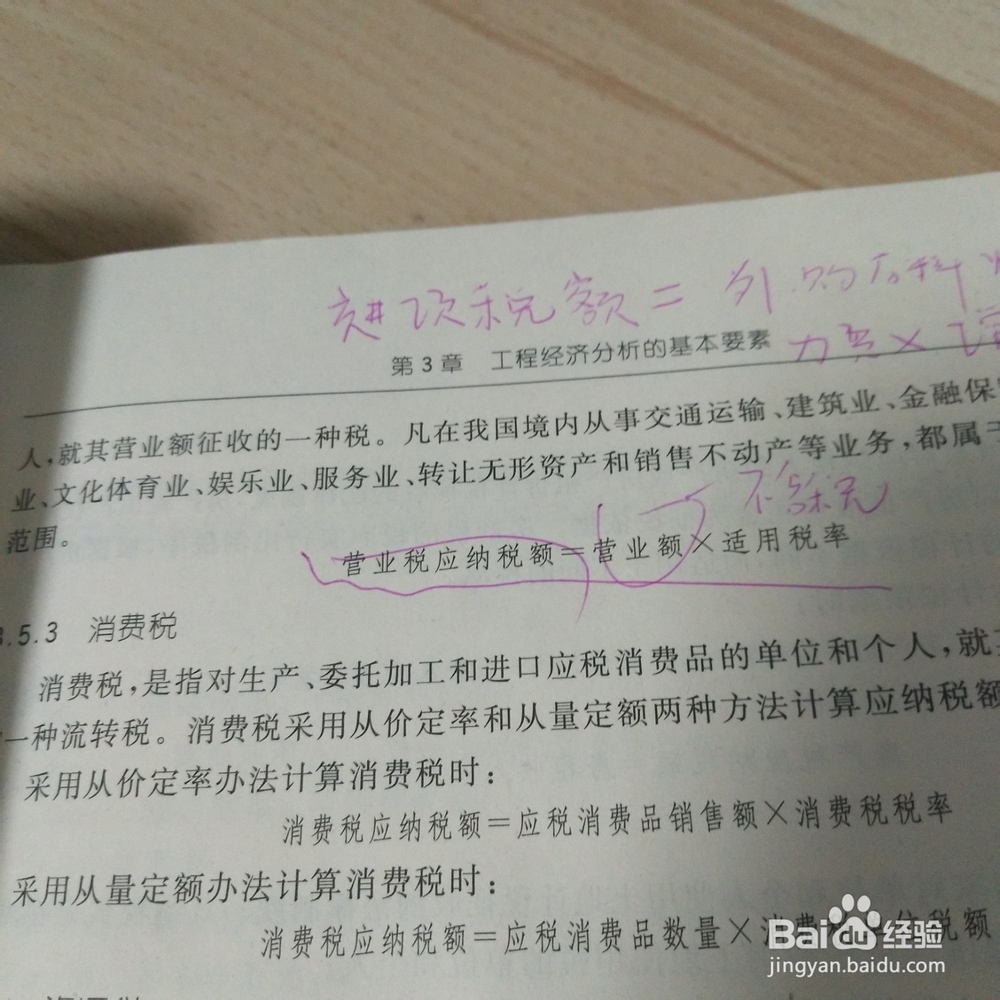 进项税额=外购原料
力费×
第3章 工程经济分析的基本要素
人,就其营业额征收的一种税。凡在我国境内从事交通运输、建筑业、金融保
业、文化体育业、娱乐业、服务业、转让无形资产和销售不动产等业务,都属
范围。
不含税
营业税应纳税额=营业额×适用税率
3.5.3 消费税
消费税,是指对生产、委托加工和进口应税消费品的单位和个人,就
一种流转税。消费税采用从价定率和从量定额两种方法计算应纳税额
采用从价定率办法计算消费税时:
消费税应纳税额=应税消费品销售额×消费税税率
采用从量定额办法计算消费税时:
消费税应纳税额=应税消费品数量×消费税单位税额
Baidu经验
jingyan.baidu.com